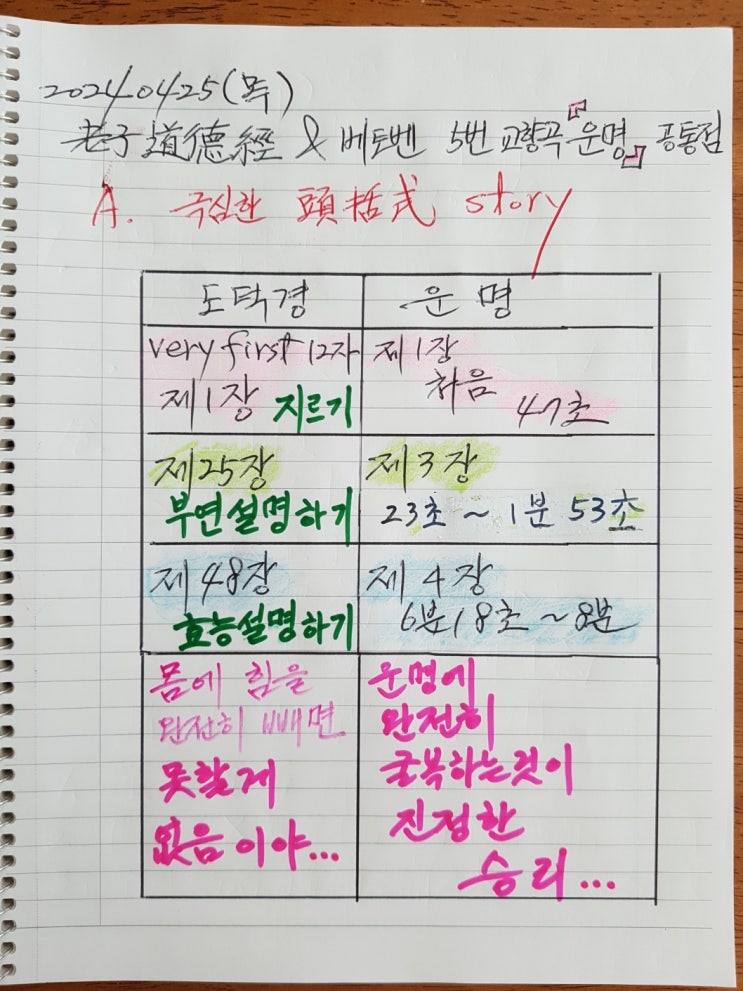 20240425(목)
老子道德經 & 베토벤 5번 교향곡 『운명』 공통점
A. 극심한 頭括式 story
도덕경 운명
very first 12자 제1장
제1장 지르기 처음 47초
제25장 제3장
부연설명하기 23초 ~ 1분 53초
제48장 제4장
효능설명하기 6분18초 ~ 8분
몸에 힘을 운명에
완전히 빼면 완전히
못할게 굴복하는것이
없음이야... 진정한
승리...